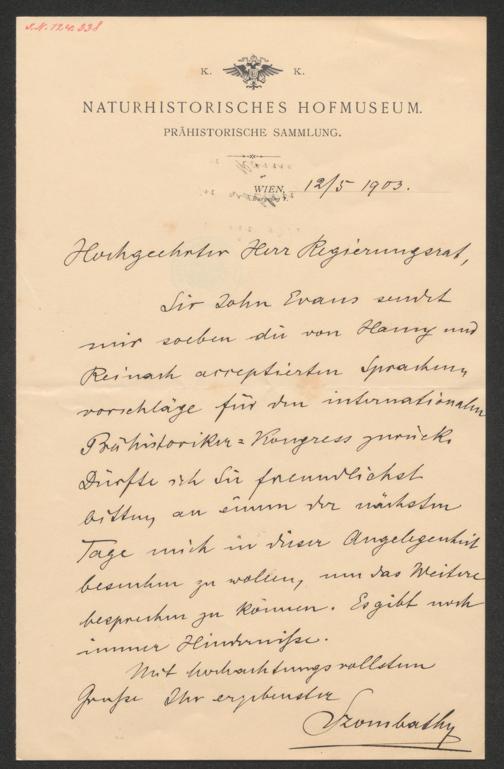 I.N. 124.338
K. K.
NATURHISTORISCHES HOFMUSEUM.
PRÄHISTORISCHE SAMMLUNG.
WIEN, 12/5 1903.
I. Burgring 7.
Hochgeehrter Herr Regierungsrat,
Sir John Evans sendet
mir soeben die von Hamy und
Reinach acceptierten Sprachen,
vorschläge für den internationalen
Prähistoriker=Kongress zurück.
Dürfte ich Sie freundlichst
bitten, an einem der nächsten
Tage mich in dieser Angelegenheit
besuchen zu wollen, um das Weitere
besprechen zu können. Es gibt noch
immer Hindernisse.
Mit hochachtungsvollstem
Gruße Ihr ergebenster
Szombathy